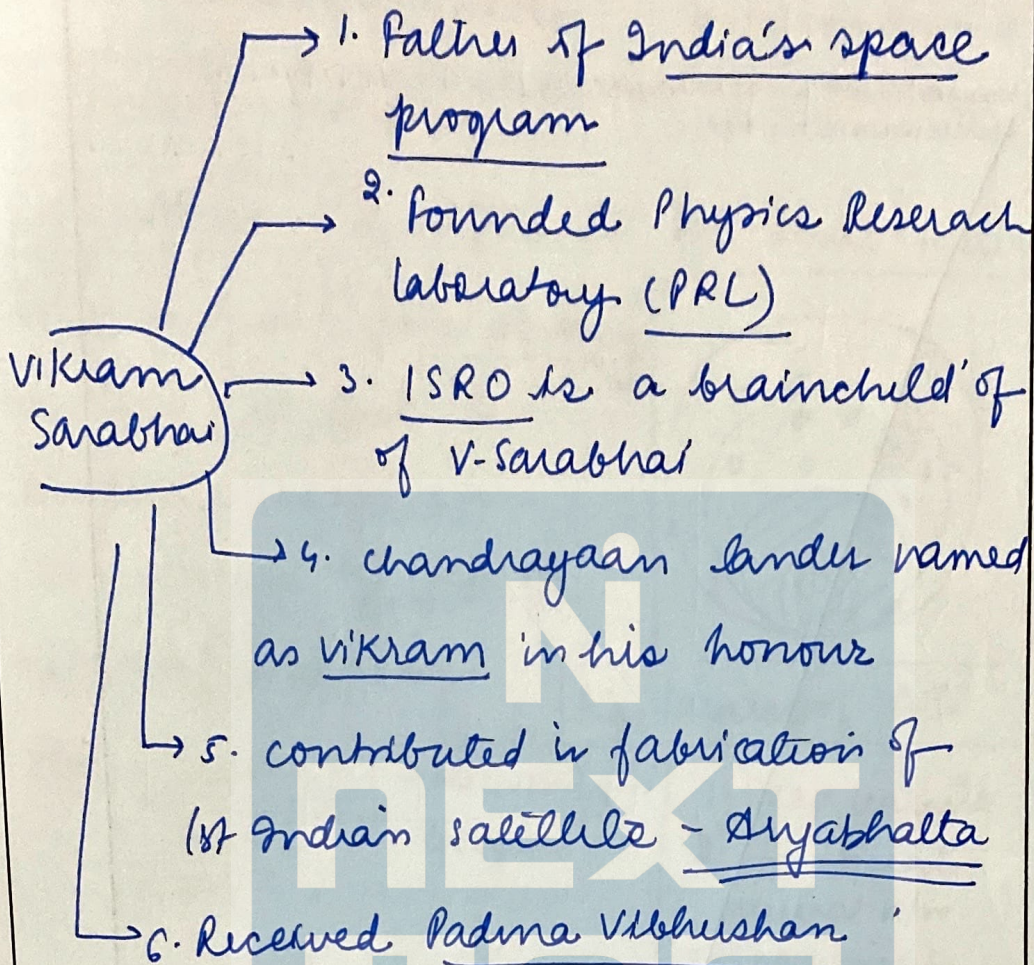 1. Father of India's space
program
2. Founded Physics Reserach
laboratory (PRL)
Vikram
Sarabhai
3. ISRO is a brainchild of
of V-Sarabhai
4. Chandrayaan lander named
as Vikram in his honour
5. contributed in fabrication of
1st Indian satellite - Aryabhatta
6. Received Padma Vibhushan
Ni
nEXT